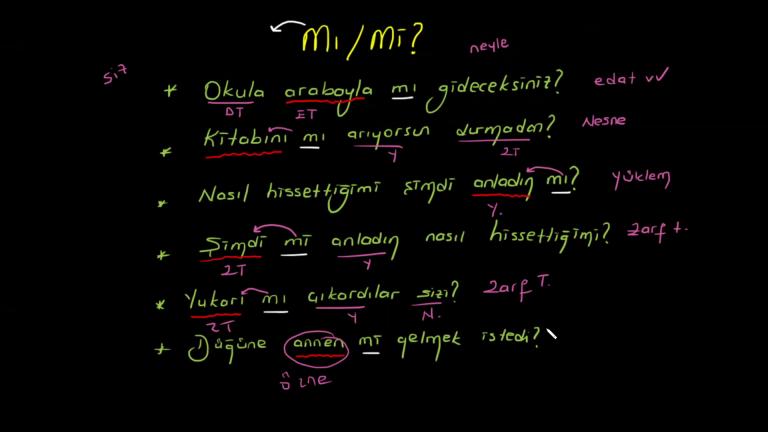 Mı/Mi?
neyle
siz
* Okula arabayla mı gideceksiniz? edat vv
DT ET
* Kitabını mı arıyorsun durmadan? Nesne
Y ZT
* Nasıl hissettiğimi şimdi anladın mı? Yüklem
Y.
* Şimdi mi anladın nasıl hissettiğimi? Zarf t.
ZT Y
* Yukarı mı çıkardılar sizi? Zarf T.
ZT Y N.
* Düğüne annen mi gelmek istedi?
özne